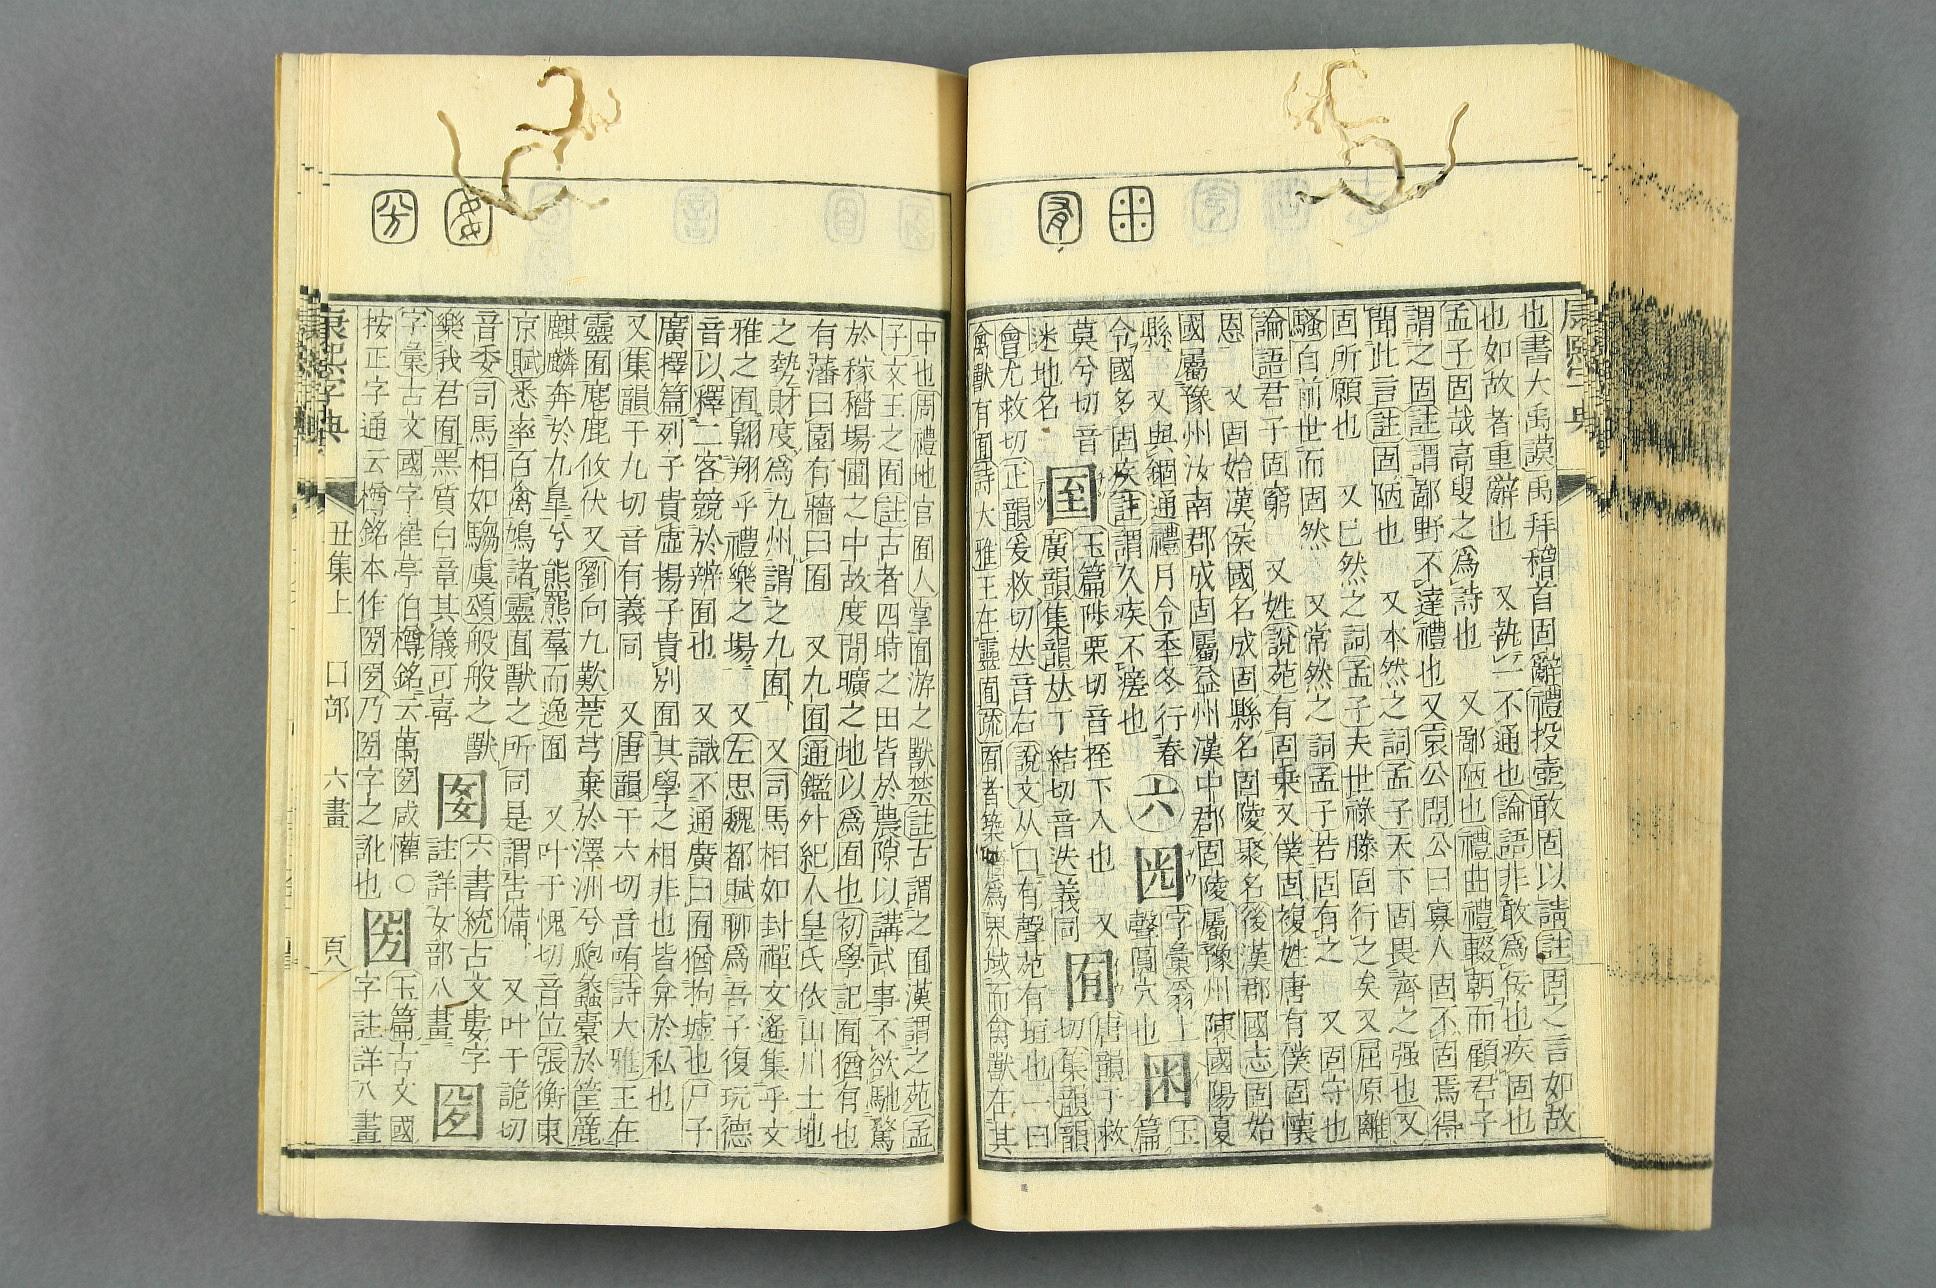 康熙字典
也書大禹謨禹拜稽首固辭禮投壺敢固以請註固之言如故
也如故者重辭也 又執一不通也論語非敢爲佞也疾固也
孟子固哉高叟之爲詩也 又鄙陋也禮曲禮輟朝而顧君子
謂之固註謂鄙野不達禮也又哀公問公曰寡人固不固焉得
聞此言註固陋也 又本然之詞孟子天下固畏齊之强也又
固所願也 又已然之詞孟子夫世祿滕固行之矣又屈原離
騷自前世而固然 又常然之詞孟子若固有之 又固守也
論語君子固窮 又姓說苑有固乘又僕固複姓唐有僕固懷
恩 又固始漢侯國名成固縣名固陵聚名後漢郡國志固始
國屬豫州汝南郡成固屬益州漢中郡固陵屬豫州陳國陽夏
縣 又與錮通禮月令季冬行春
令國多固疾註謂久疾不瘥也
六
囮 字彙
聲圓穴也
囦 玉
篇
莫兮切音
迷地名
囸 玉篇陟栗切音桎下入也 又
廣韻集韻𠀤丁結切音迭義同
囿 唐韻于救
切集韻韻
會尤救切正韻爰救切𠀤音右說文从囗有聲苑有垣也一曰
禽獸有囿詩大雅王在靈囿疏囿者築牆爲界域而禽獸在其
中也周禮地官囿人掌囿游之獸禁註古謂之囿漢謂之苑孟
子文王之囿註古者四時之田皆於農隙以講武事不欲馳騖
於稼穡場圃之中故度閒曠之地以爲囿也初學記囿猶有也
有藩曰園有牆曰囿 又九囿通鑑外紀人皇氏依山川土地
之勢財度爲九州謂之九囿 又司馬相如封禪文遙集乎文
雅之囿翱翔乎禮樂之場 又左思魏都賦聊爲吾子復玩德
音以釋二客競於辨囿也 又識不通廣曰囿猶拘墟也尸子
廣擇篇列子貴虛揚子貴別囿其學之相非也皆弇於私也
又集韻于九切音有義同 又唐韻于六切音哊詩大雅王在
靈囿麀鹿攸伏又劉向九歎莞芎棄於澤洲兮瓟蠡蠹於筐簏
麒麟奔於九皐兮熊羆羣而逸囿 又叶于愧切音位張衡東
京賦悉率百禽鳩諸靈囿獸之所同是謂告備 又叶于詭切
音委司馬相如騶虞頌般般之獸
樂我君囿黑質白章其儀可喜
囡 六書統古文婁字
註詳女部八畫
字彙古文國字崔亭伯樽銘云萬國咸懽○
按正字通云樽銘本作圀圀乃圀字之訛也
圀 玉篇古文國
字註詳八畫
康熙字典
丑集上 囗部 六畫 頁